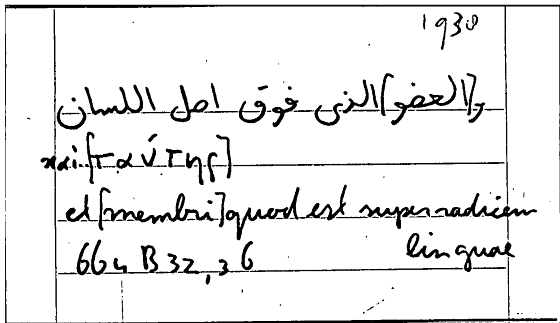 1930
و[العضو] الذى فوق اصل اللسان
καὶ [ταύτης]
et [membri] quod est super radicem
linguae
664 B 32, 36